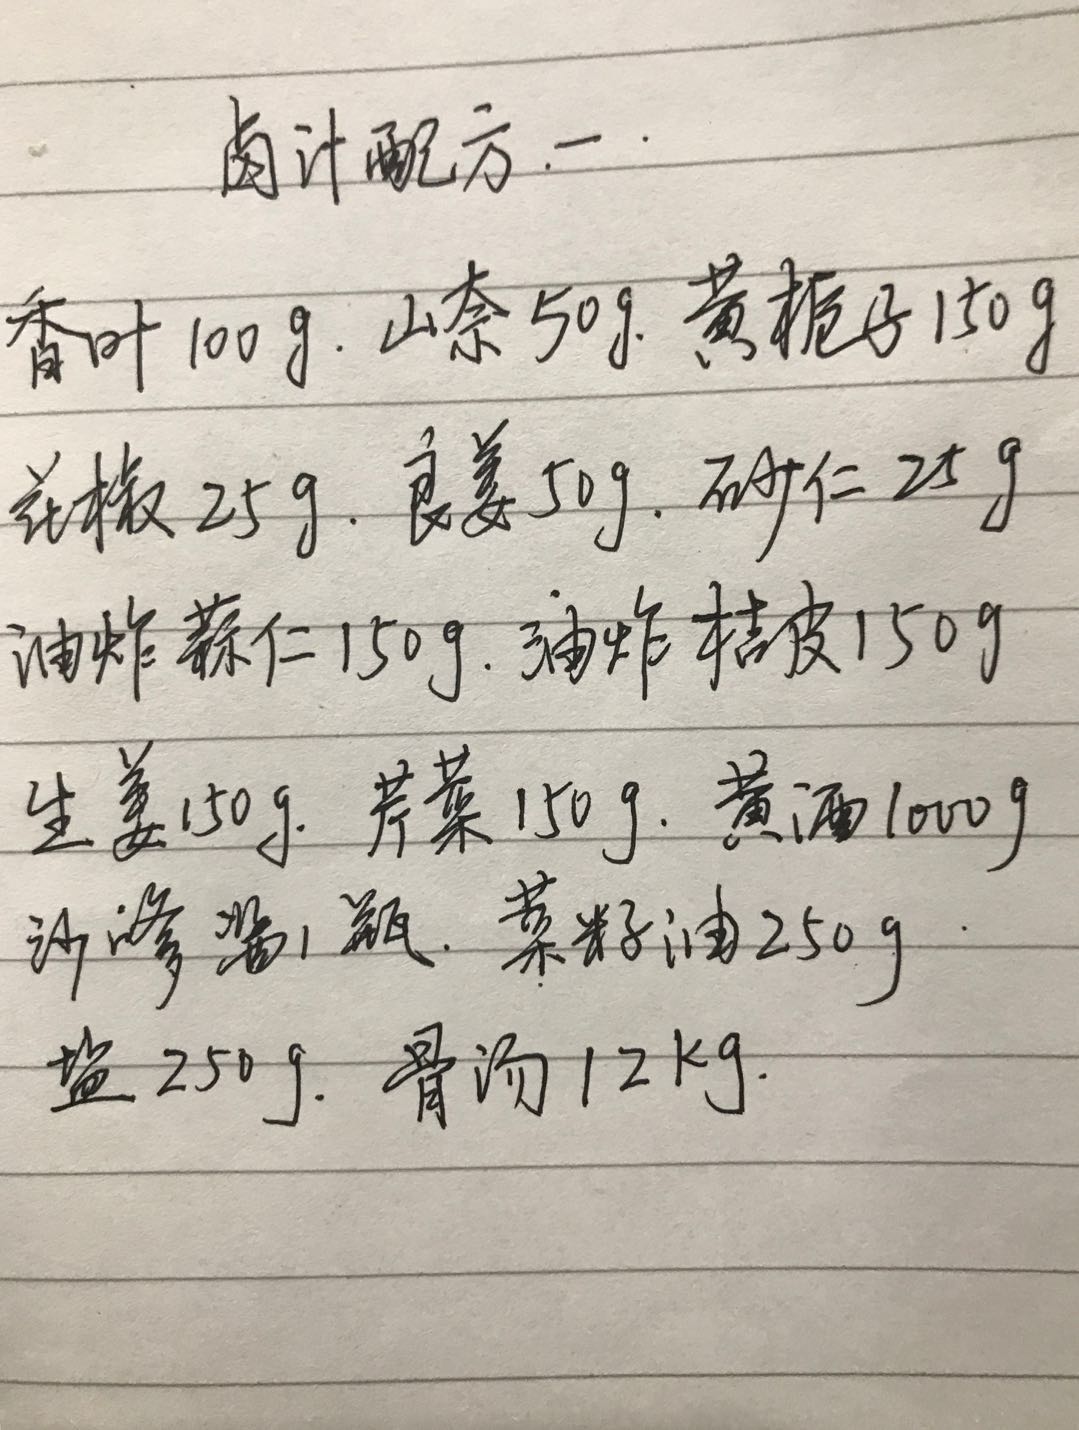 卤汁配方.一.
香叶100g.山奈50g.黄栀子150g
花椒25g.良姜50g.砂仁25g
油炸蒜仁150g.油炸桔皮150g
生姜150g.芹菜150g.黄酒1000g
沙嗲酱1瓶.菜籽油250g.
盐250g.骨汤12kg.